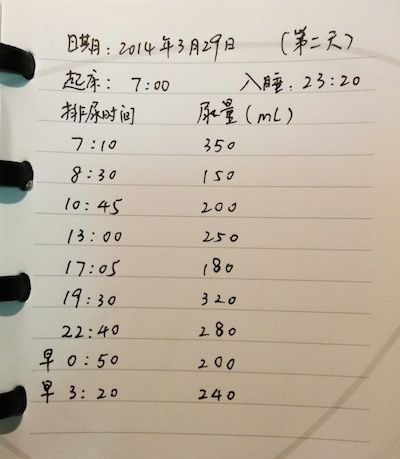 日期：2014年3月29日 （第二天）
起床：7:00 入睡：23:20
排尿时间 尿量（mL）
7:10 350
8:30 150
10:45 200
13:00 250
17:05 180
19:30 320
22:40 280
早 0:50 200
早 3:20 240